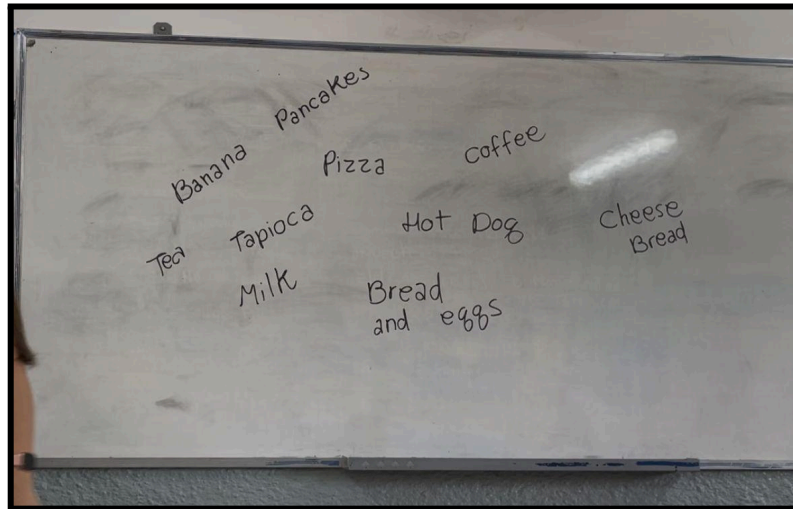 Banana Pancakes
Pizza
Coffee
Tea
Tapioca
Hot Dog
Cheese
Bread
Milk
Bread
and eggs